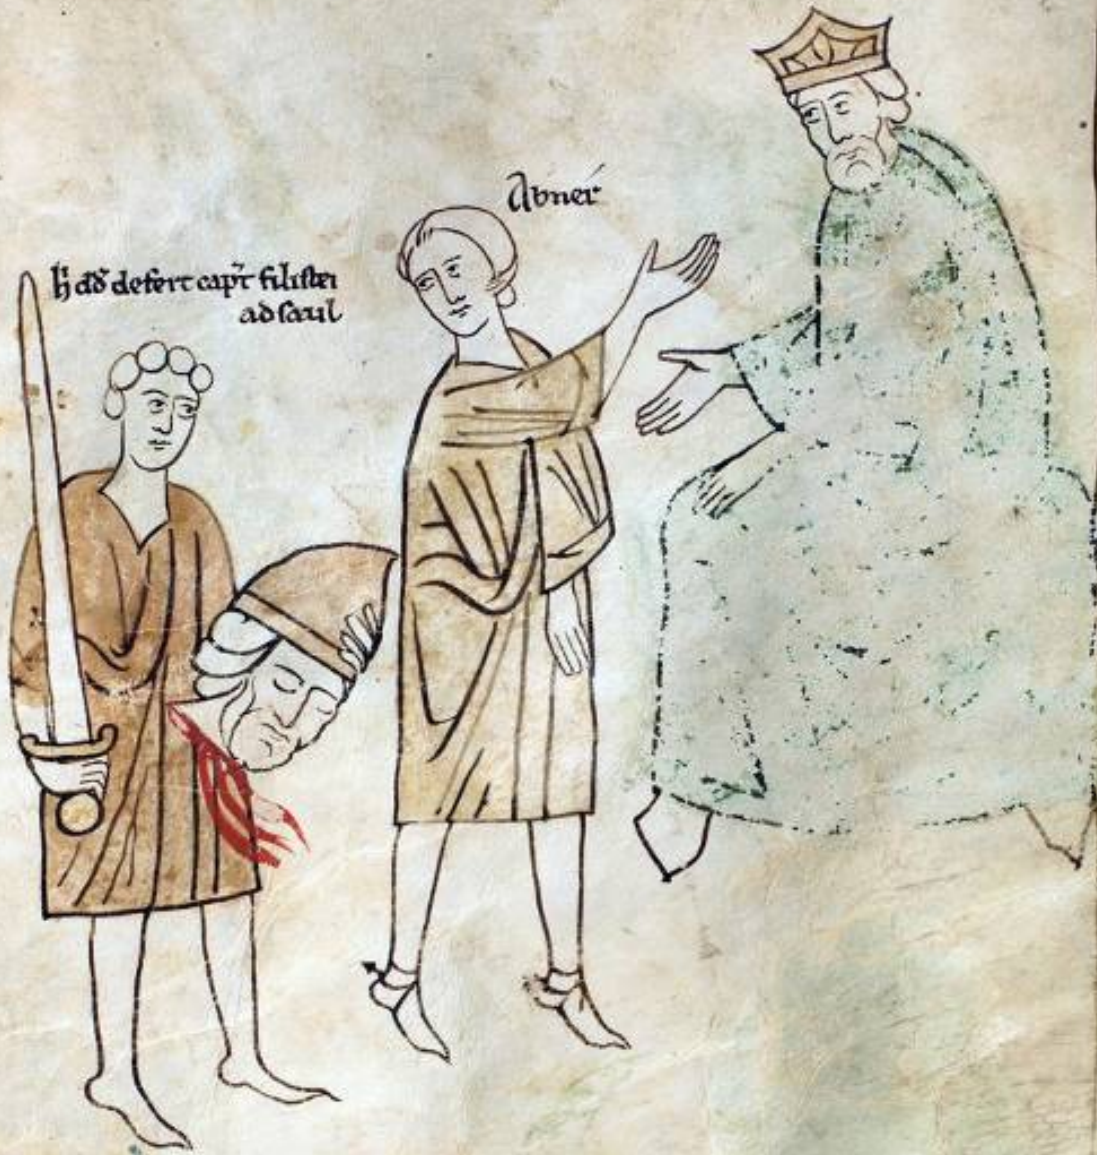 h̄ dd̄ defert cap̄t filistei
ad saul
Abner